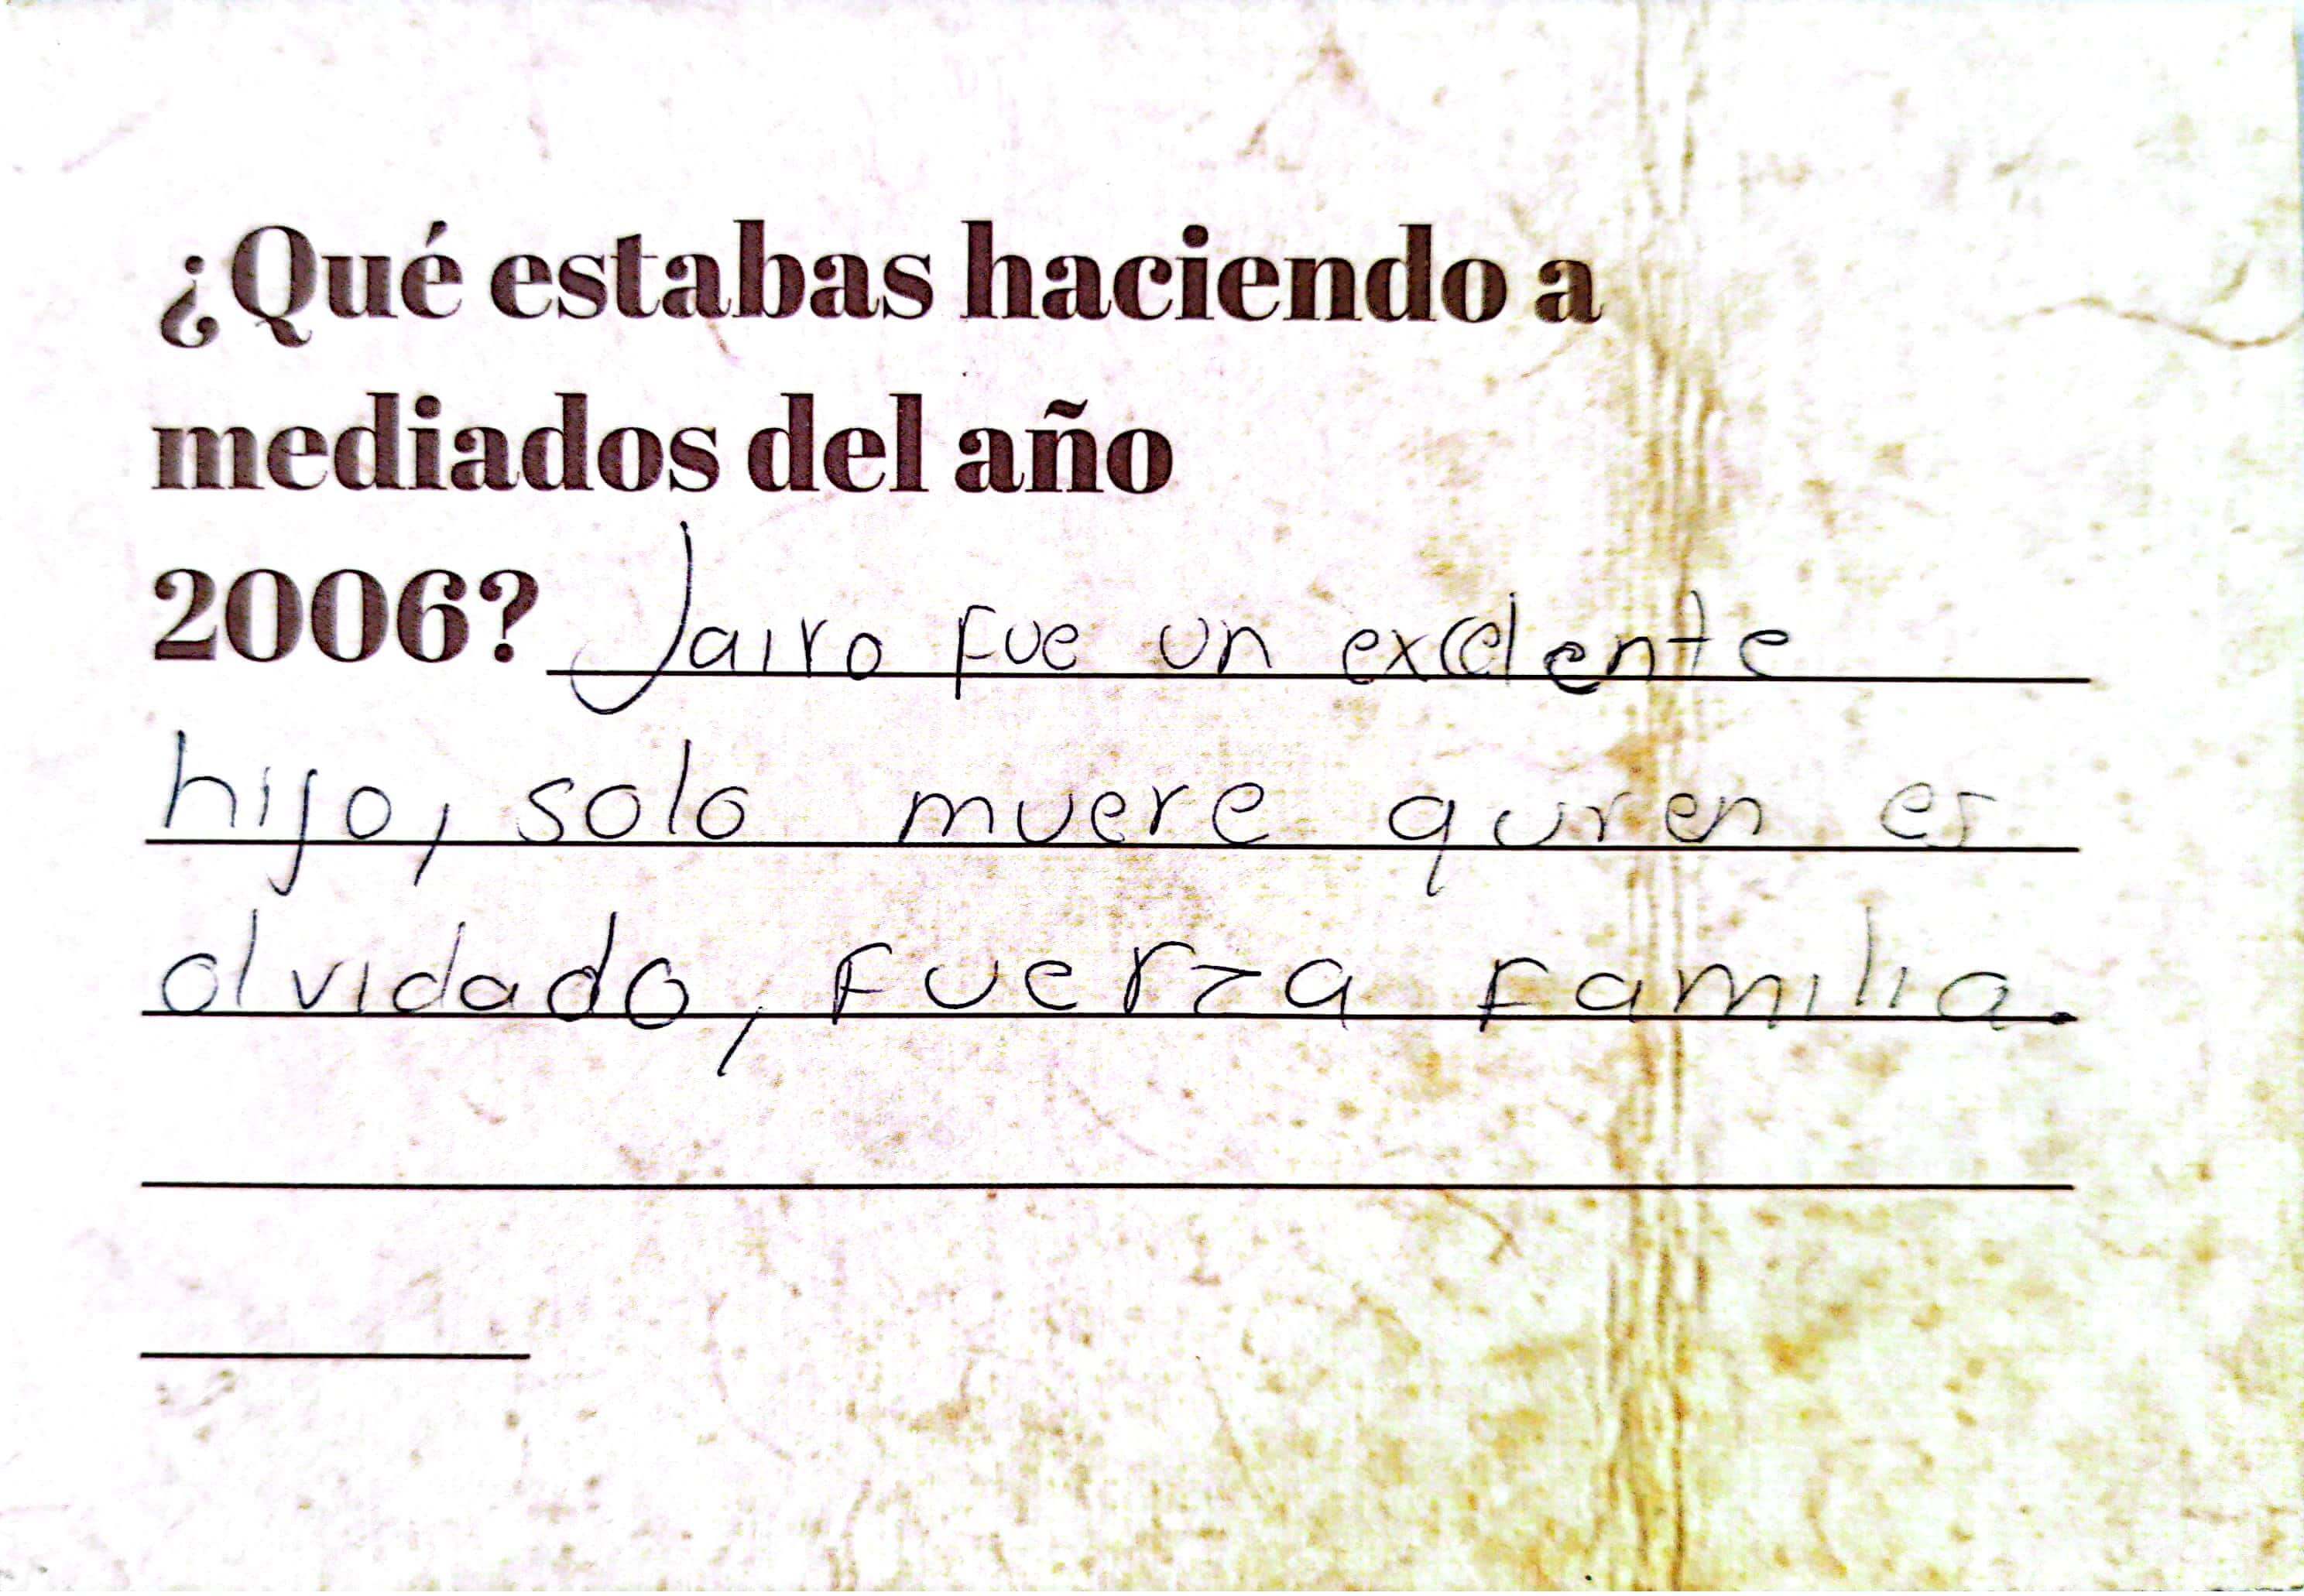 ¿Qué estabas haciendo a
mediados del año
2006? Jairo fue un excelente
hijo, solo muere quien es
olvidado, fuerza familia.